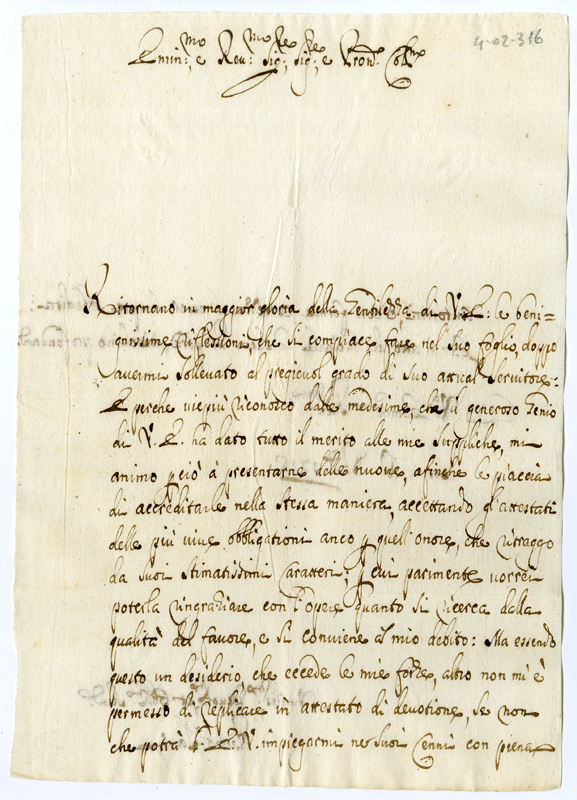 4-02-316
Emin:mo, e Reu:mo Sig:re Sig:re e Pron: Col:mo
Ritornano in maggior gloria della Gentilezza di V. E: le beni=
gnissime riflessioni, che si compiace fare nel Suo foglio, doppo
auermi solleuato al pregieuol grado di Suo attual Seruitore:
E perche uie più riconosco dalle medesime, che il generoso Genio
di V. E. ha dato tutto il merito alle mie suppliche, mi
animo però à presentarne delle nuoue, afinche le piaccia
di accreditarle nella stessa maniera, accettando gl'attestati
delle più uiue obbligationi anco p quell'onore, che ritraggo
da Suoi stimatissimi Caratteri; p cui parimente uorrei
poterla ringraziare con l'opere quanto si ricerca dalla
qualità del fauore, e si conuiene al mio debito: Ma essendo
questo un desiderio, che eccede le mie forze, altro non mi è
permesso di replicare in attestato di deuotione, se non
che potrà l' E. V. impiegarmi ne Suoi Cenni con piena